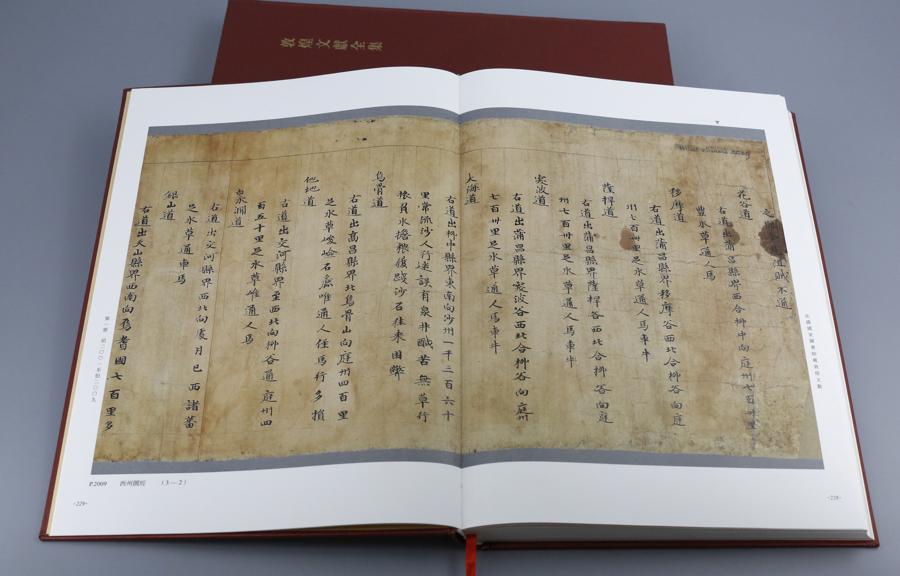 敦煌文獻全集
道賊不通
花谷道
右道出蒲昌縣界西合柳中向庭州七百卅里
豐水草通人馬
移摩道
右道出蒲昌縣界移摩谷西北合柳谷向庭
州七百卌里足水草通人馬車牛
薩捍道
右道出蒲昌縣界薩捍谷西北合柳谷向庭
州七百卅里足水草通人馬車牛
突波道
右道出蒲昌縣界突波谷西北合柳谷向庭州
七百卅里足水草通人馬車牛
大海道
右道出柳中縣界東南向沙州一千三百六十
里常流沙人行迷誤有泉井鹹苦無草行
旅負水擔糧履踐沙石往來困弊
烏骨道
右道出高昌縣界北烏骨山向庭州四百里
足水草峻嶮石麁唯通人徑馬行多損
他地道
右道出交河縣界至西北向柳谷通庭州四
百五十里足水草唯通人馬
白水澗道
右道出交河縣界西北向處月已西諸蕃
足水草通車馬
銀山道
右道出天山縣界西南向焉耆國七百里多
法國國家圖書館藏敦煌文獻
第一冊 伯二〇〇一至伯二〇〇九
P.2009 西州圖經 (3—2)
·229·
·228·